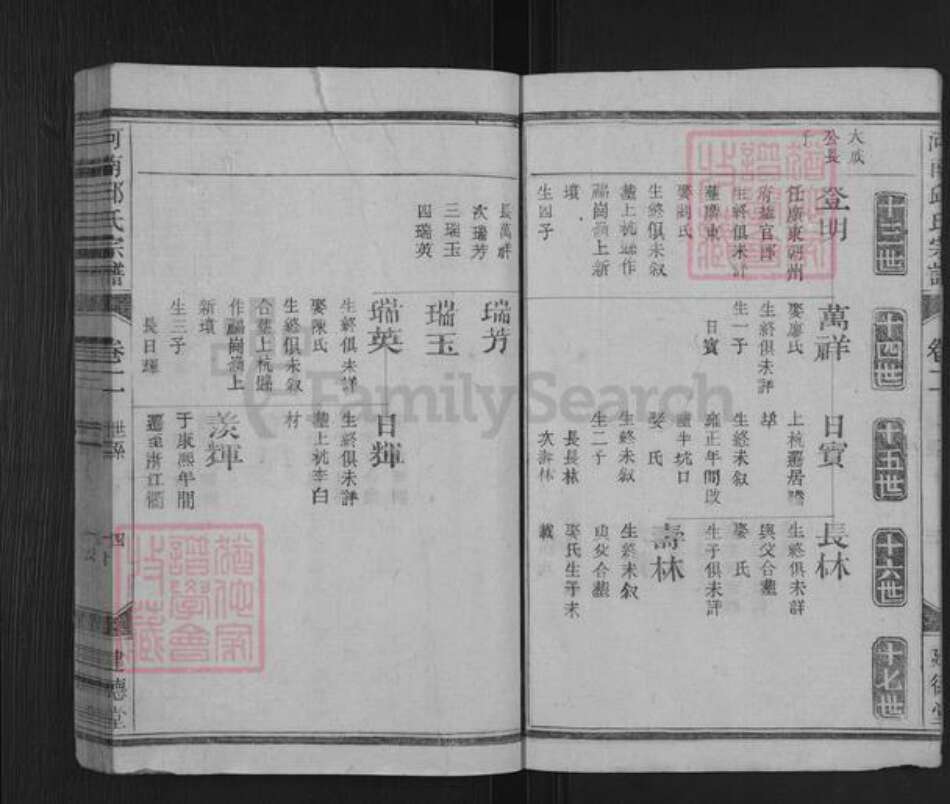 十三世
十四世
十五世
十六世
十七世
大成
公長
子
登明
任廣東潮州
生終俱未詳
葬廣東
娶劉氏
生終俱未叙
葬上杭縣作
福崗嶺上新
墳
生四子
長萬祥
次瑞芳
三瑞玉
四瑞英
萬祥
娶廖氏
生終俱未詳
生一子
日寶
瑞芳
瑞玉
瑞英
生終俱未詳
娶陳氏
生終俱未叙
合葬上杭縣
作福崗嶺上
新墳
生三子
長日輝
日寶
上杭遷居
生終未叙
雍正年間改
葬牛坑口
娶 氏
生終未叙
生二子
長長林
次壽林
日輝
生終俱未詳
葬上杭李白
材
羨輝
于康熙年間
遷至浙江衢
長林
生終俱未詳
與父合葬
娶 氏
生子俱未詳
壽林
生終未叙
與父合葬
娶氏生子未
載
河南邱氏宗譜
卷二
世系
四十
建德堂
猶他家譜學會收藏
FamilySearch